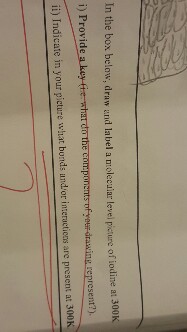 In the box below, draw and label a molecular level picture of iodine at 300K
i) Provide a key (i.e. what do the components of your drawing represent?).
ii) Indicate in your picture what bonds and/or interactions are present at 300K